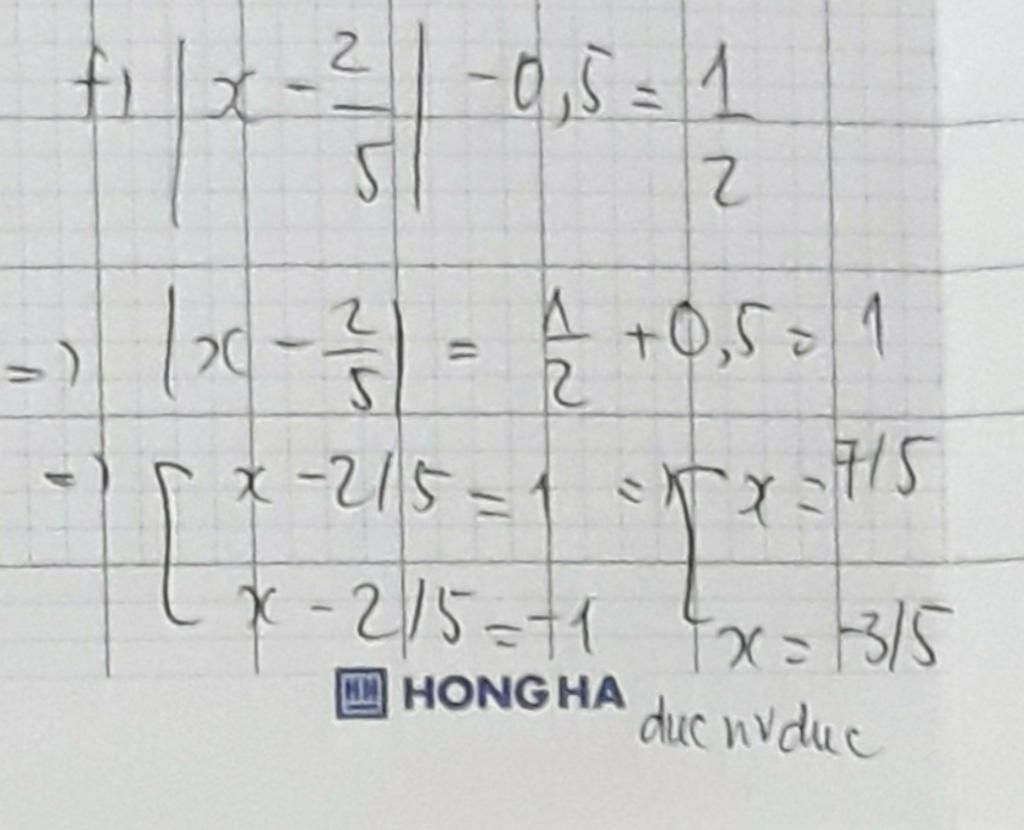 f) |x - 2/5| - 0,5 = 1/2
=> |x - 2/5| = 1/2 + 0,5 = 1
=> [ x - 2/5 = 1 => [ x = 7/5
x - 2/5 = -1 x = -3/5
HONG HA
duc nv duc